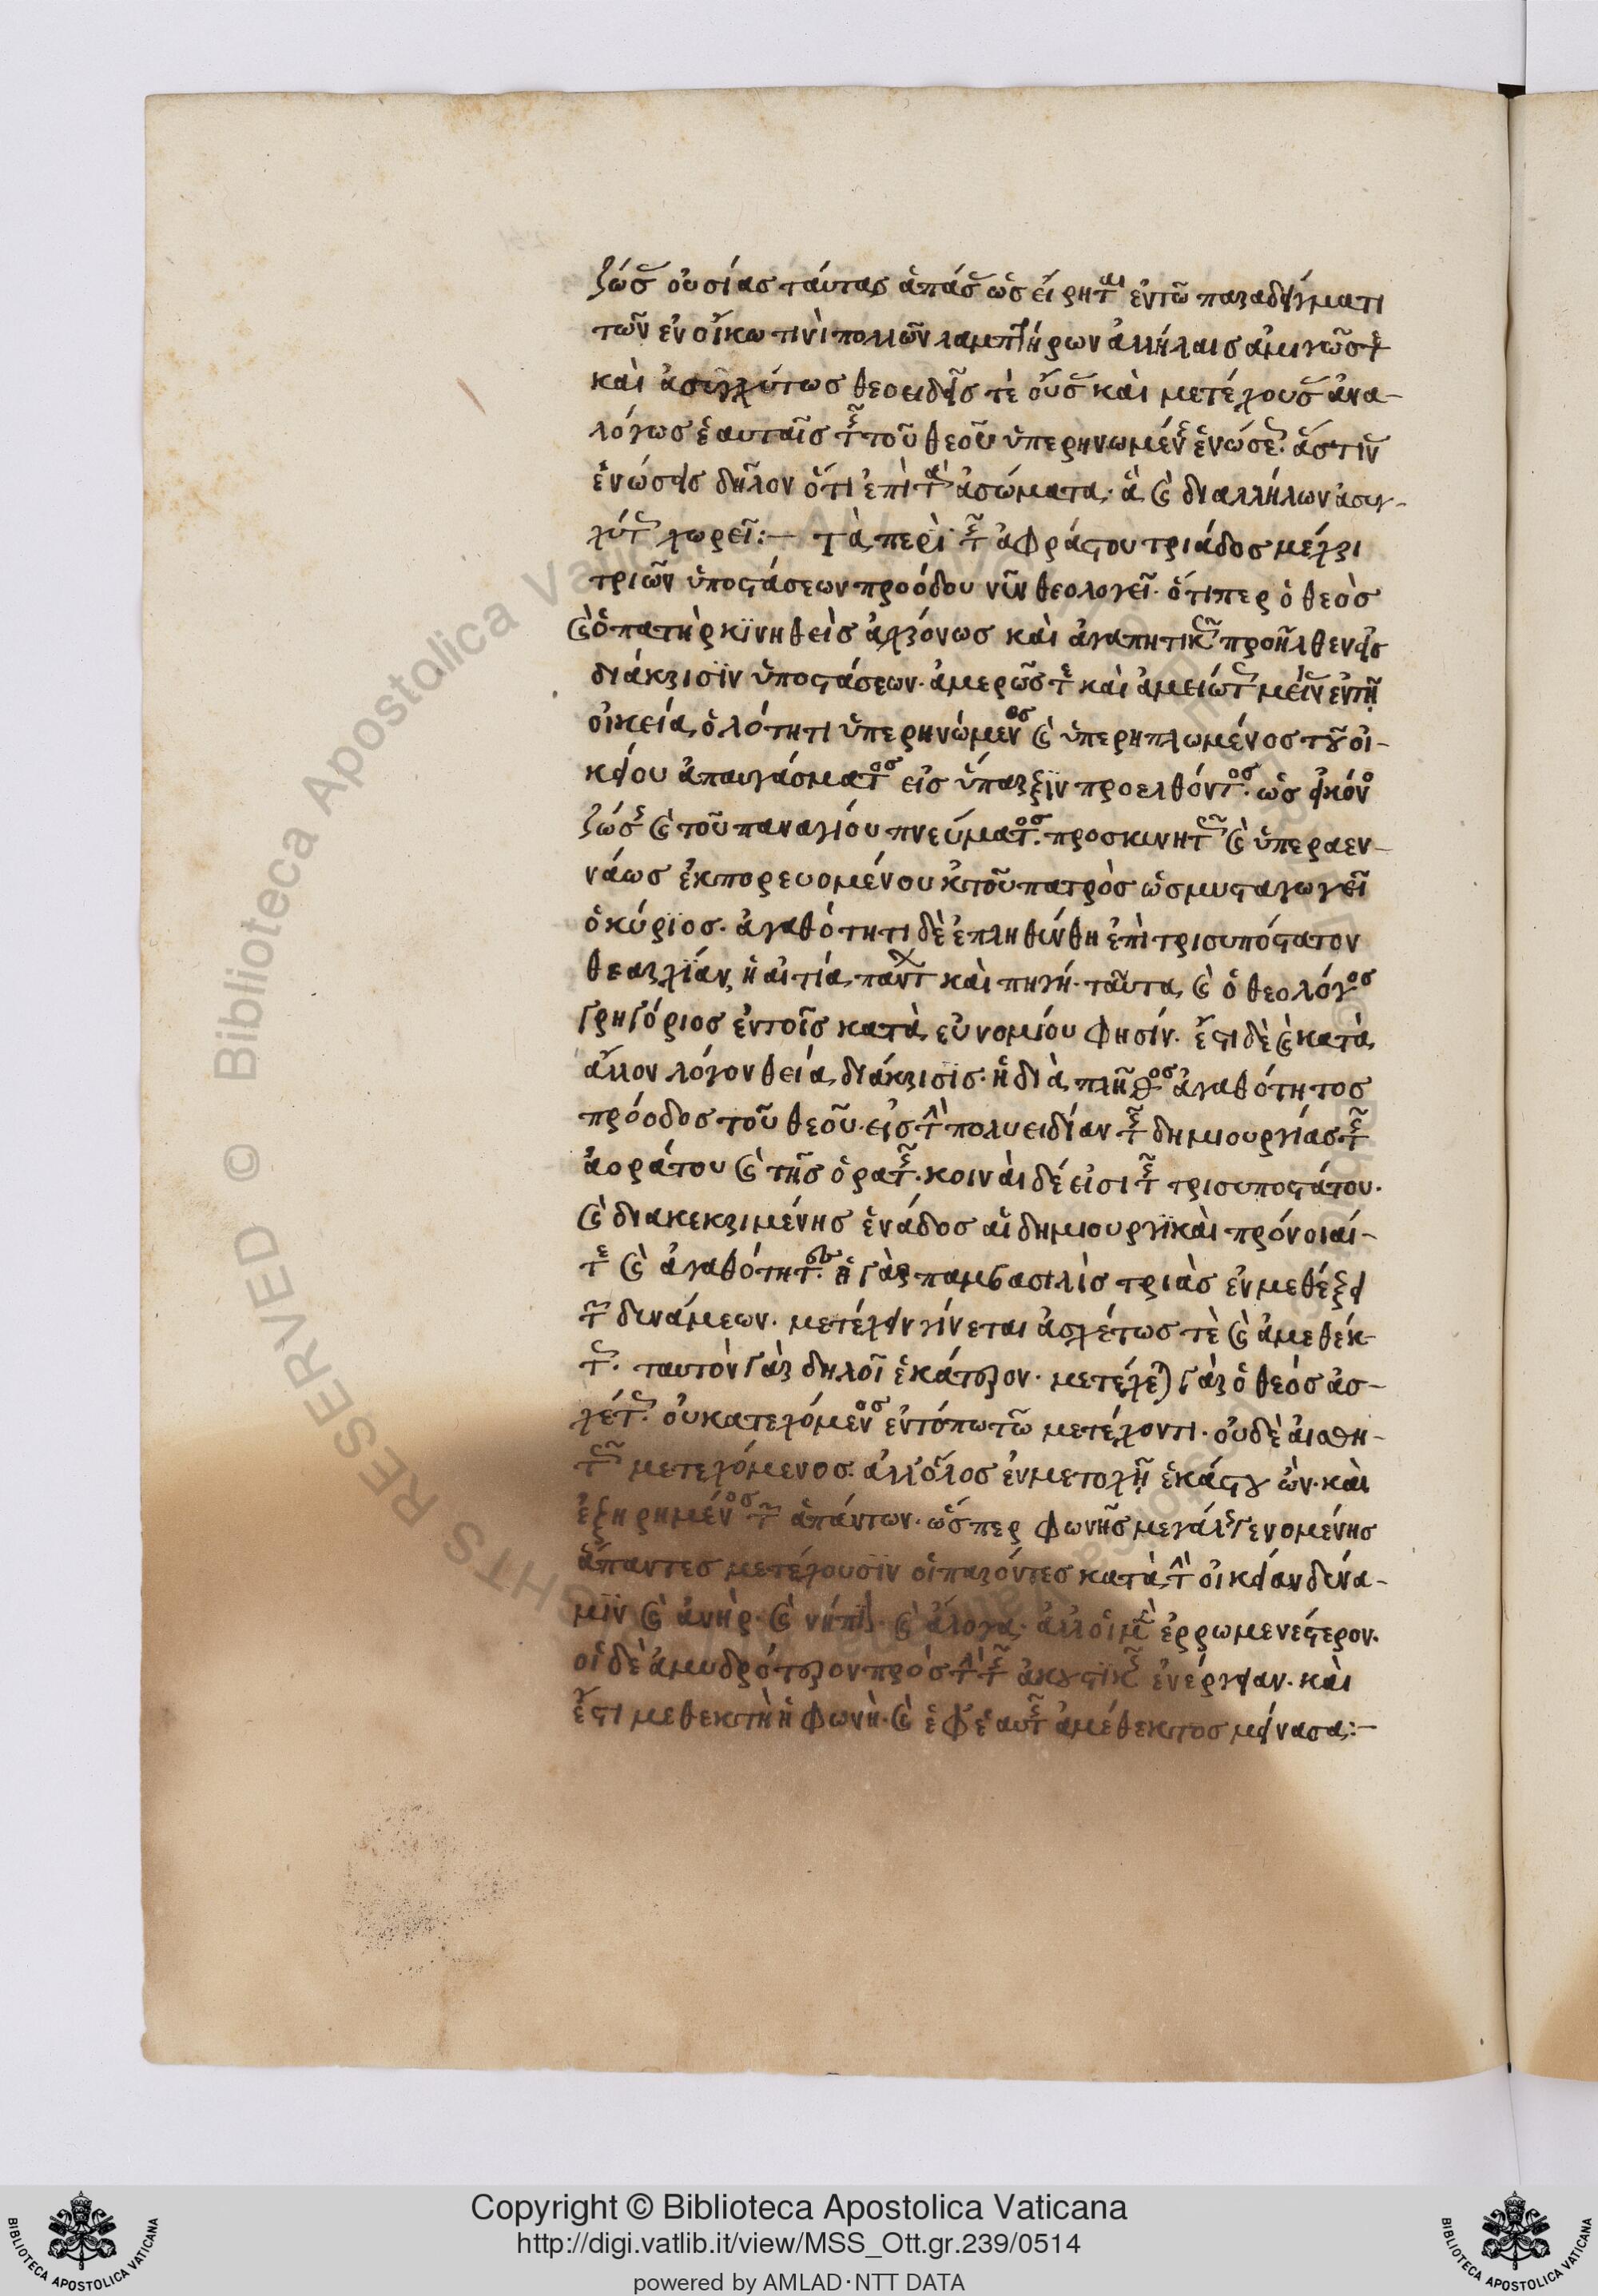 ζώσας οὐσίας ταύτας ἁπάσας ὡς εἴρηται ἐν τῶ παραδείγματι
τῶν ἐν οἴκω τινὶ πολλῶν λαμπτήρων ἀλλήλαις ἀμιγῶς τὲ
καὶ ἀσυγχύτως θεοειδεῖς τὲ οὔσας καὶ μετέχουσας ἀνα-
λόγως ἑαυταῖς τῆς τοῦ θεοῦ ὑπερηνωμένης ἑνώσεως. ἅστιν
ἑνώσεις δῆλον ὅτι ἐπὶ τὰ ἀσώματα. ἃ καὶ δι αλλήλων ἀσυγ-
χύτως χωρεῖ:— τὰ περὶ τῆς ἀφράστου τριάδος μέχρι
τριῶν ὑποστάσεων προόδου νῦν θεολογεῖ. ὅτιπερ ὁ θεὸς
καὶ ὁ πατὴρ κϊνηθεὶς ἀχρόνως καὶ ἀγαπητικῶς προῆλθεν εἰς
διάκρισϊν ὑποστάσεων. ἀμερῶς τὲ καὶ ἀμειώτως μείνας ἐν τῇ
οἰκεία ὁλότητι ὑπερηνώμενος καὶ ὑπερηπλωμένος τοῦ οἰ-
κείου ἀπαυγάσματος εἰς ὕπαρξϊν προελθόντος. ὡς εἰκόνος
ζώσης καὶ τοῦ παναγίου πνεύματος. προσκυνητῶς καὶ ὑπεραεν-
νάως ἐκπορευομένου ἐκ τοῦ πατρὸς ὡς μυσταγωγεῖ
ὁ κύριος. ἀγαθότητι δὲ ἐπληθύνθη ἐπὶ τρισυπόστατον
θεαρχίαν, ἡ αἰτία πάντων καὶ πηγή. ταῦτα καὶ ὁ θεολόγος
Γρηγόριος ἐν τοῖς κατὰ εὐνομίου φησίν. ἔστι δὲ καὶ κατὰ
ἄλλον λόγον θεία διάκρισϊς. ἡ διὰ πλῆθος ἀγαθότητος
πρόοδος τοῦ θεοῦ. εἰς τὴν πολυειδίαν τῆς δημιουργίας τῆς
ἀοράτου καὶ τῆς ὁρατῆς. κοιναὶ δέ εἰσι τῆς τρισυποστάτου.
καὶ διακεκριμένης ἑνάδος αἱ δημιουργϊκαὶ πρόνοιαί-
τε καὶ ἀγαθότητες. ἡ γὰρ παμβασιλὶς τριὰς ἐν μεθέξει
τῶν δυνάμεων. μετέχειν γίνεται ἀσχέτως τὲ καὶ ἀμεθέκ-
τως. ταυτὸν γὰρ δηλοῖ ἑκάτερον. μετέχεται γὰρ ὁ θεός ἀσ-
χέτως. οὐ κατεχόμενος ἐν τόπω τῶ μετέχοντι. οὐδὲ αἰσθη-
τῶς μετεχόμενος. ἀλλ' ὅλος ἐν μετοχῇ ἑκάστου ὢν. καὶ
ἐξηρημένος τῶν ἁπάντων. ὥσπερ φωνῆς μεγάλης γενομένης
ἅπαντες μετέχουσϊν οἱ παρόντες κατὰ τὴν οἰκείαν δύνα-
μϊν καὶ ἀνὴρ. καὶ νήπιον. καὶ ἄλογα. ἀλλ' οἱ μὲν ἐρρωμενέστερον.
οἱ δὲ ἀμυδρότερον πρὸς τὴν τῆς ἀκουστϊκῆς ἐνέργειαν. καὶ
ἔστι μεθεκτὴ ἡ φωνὴ. καὶ ἐφ' ἑαυτῆς ἀμέθεκτος μείνασα:—
Copyright © Biblioteca Apostolica Vaticana
http://digi.vatlib.it/view/MSS_Ott.gr.239/0514
powered by AMLAD·NTT DATA
BIBLIOTECA APOSTOLICA VATICANA
BIBLIOTECA APOSTOLICA VATICANA